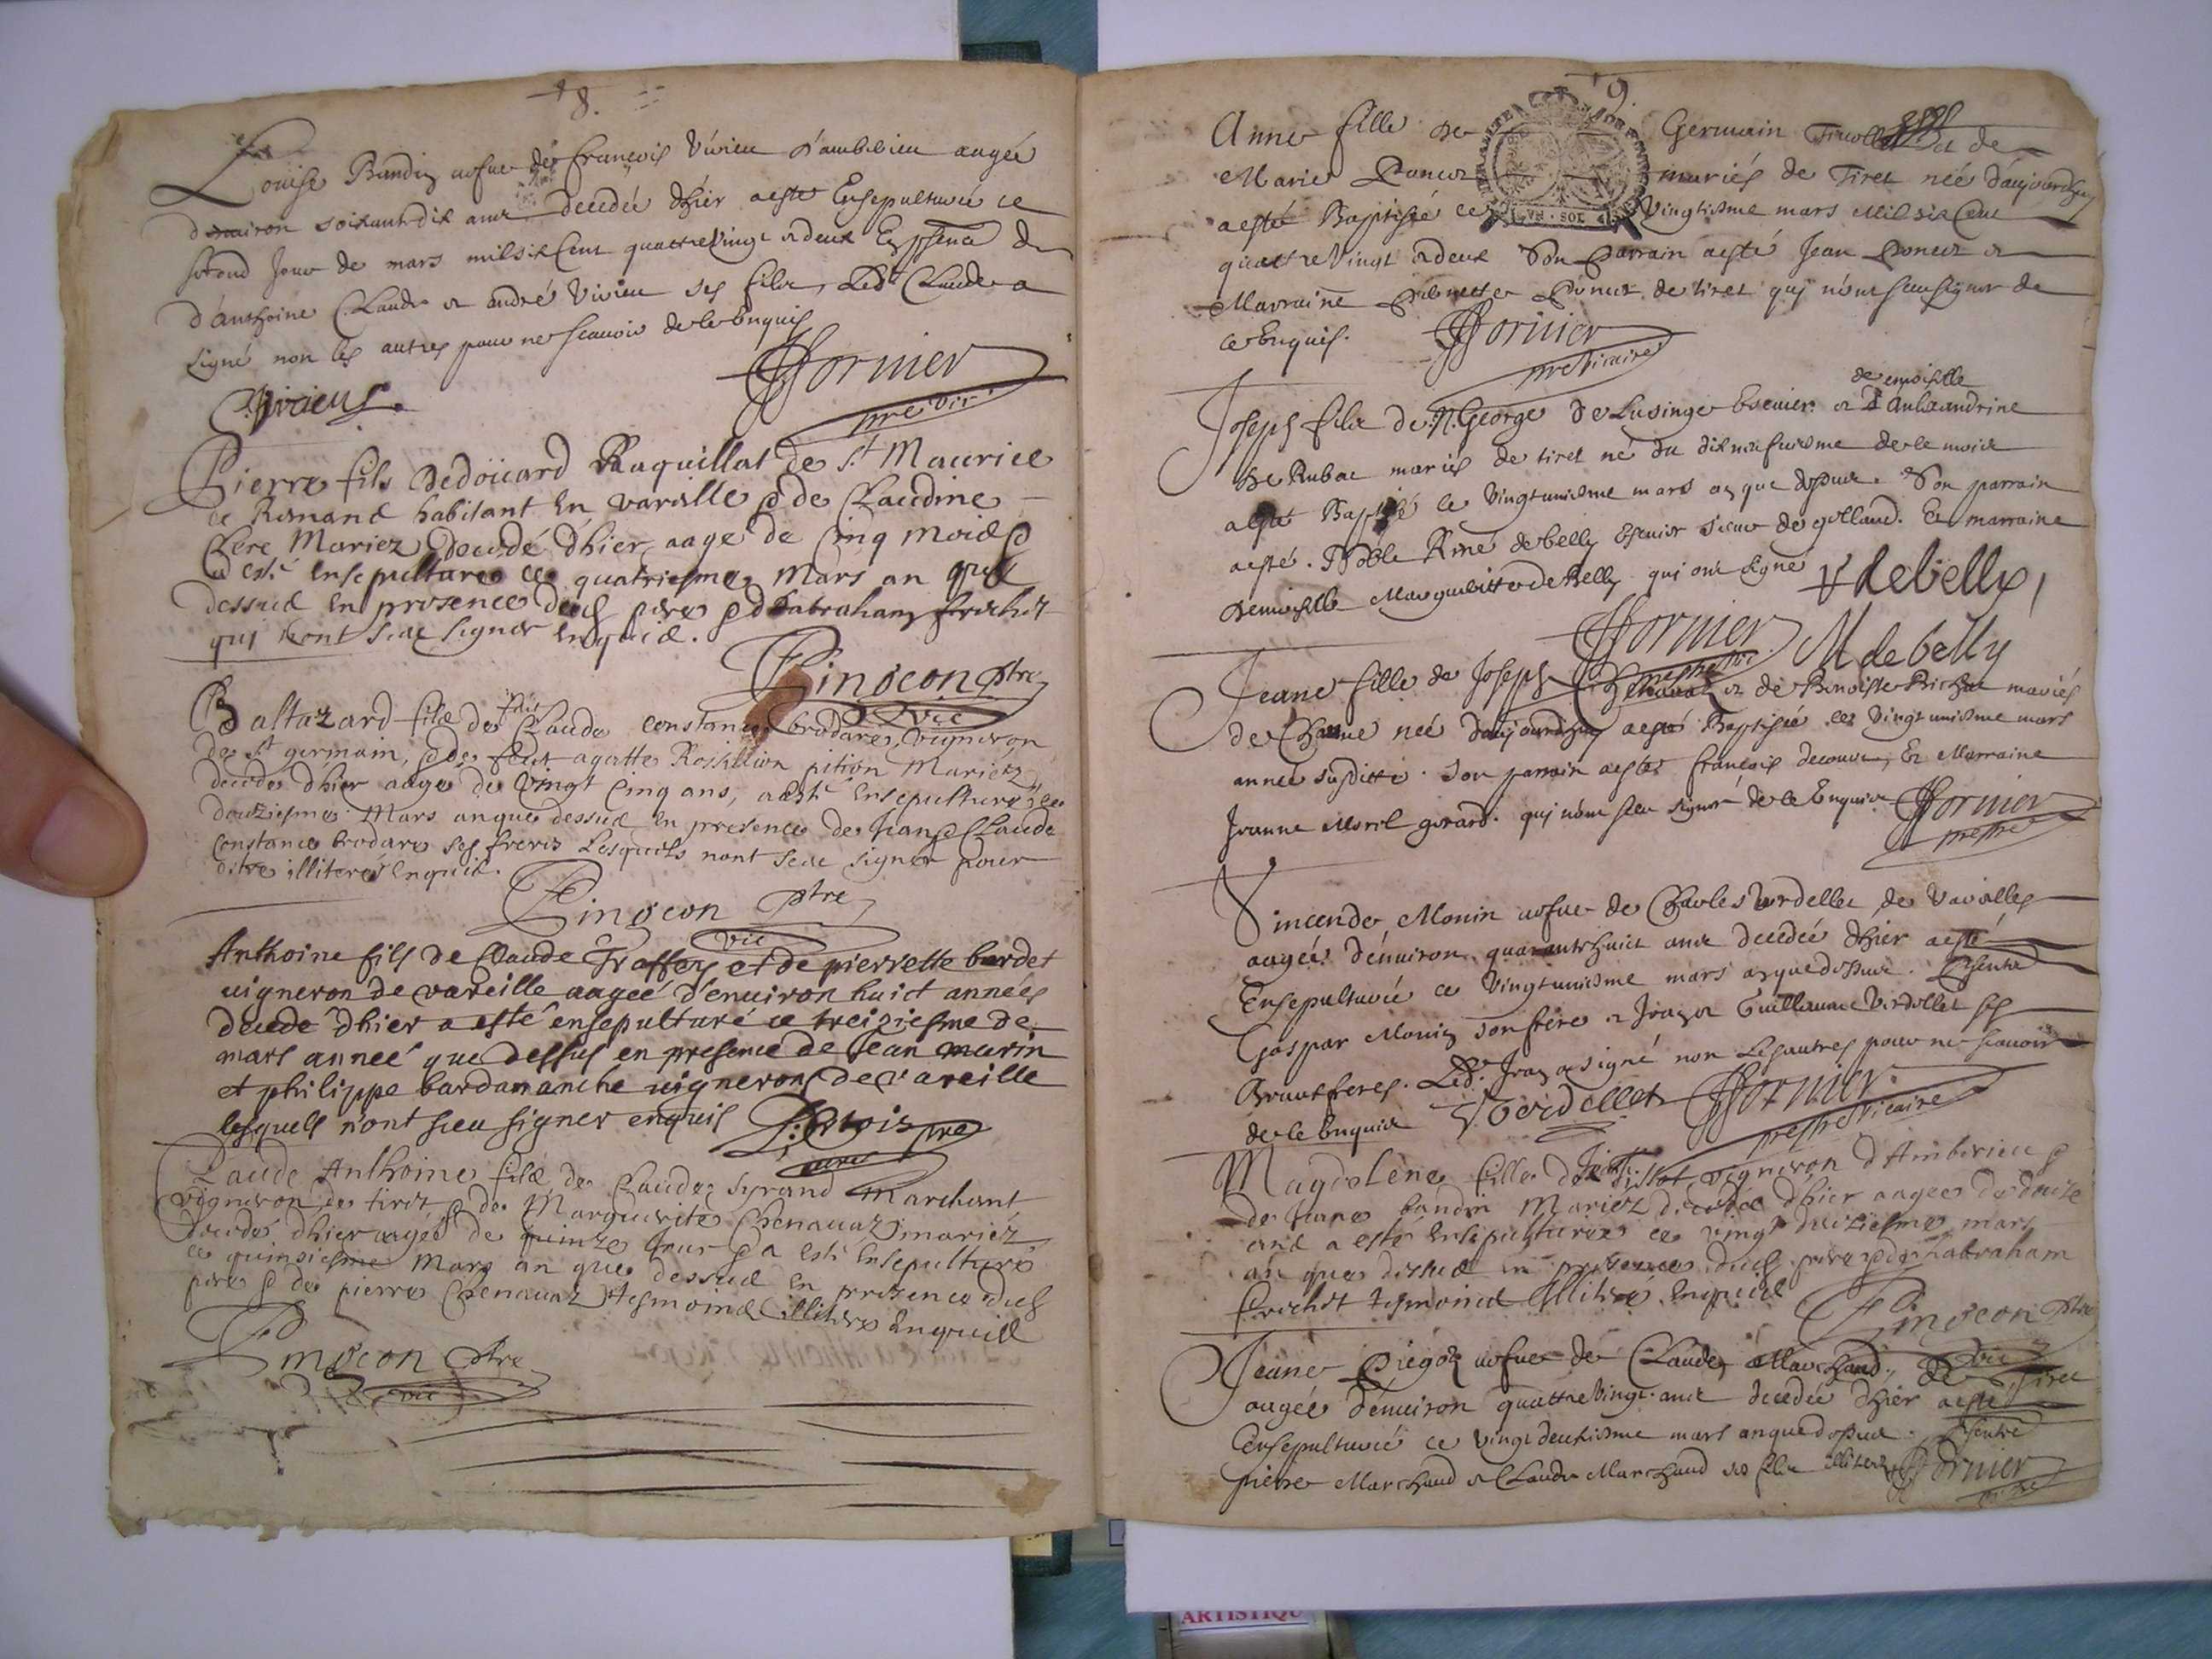 8.
Louise Bandin vefue de françois Vivien d'ambérieu aagée
d'enuiron soixante dix ans decedée dhier aesté Ensepulturée ce
second Jour de mars mil six Cent quattre Vingt et deux En psence de
d'anthoine Claude et andré Vivien ses filz, Ledt Claude a
signé non les autres pour ne scauoir de ce Enquis
C Vivieus.
Hornier
pre vic
Pierre fils dedoüard Raquillat de St Maurice
de Remand habitant En vareille & de Claudine
Clere Mariez decedé dhier, aage de Cinq mois &
a esté Ensepulturé ce quatriesme Mars an que
dessus En presence dud pere & d'habraham frichet
qui n'ont sceu signer Enquis.
Pingeon ptre
vic
Baltazard fils de Claude constance brodare, vigneron
de St germain, & de feue agatte Rossillion pition Mariez
decedé dhier aagé de Vingt Cinq ans, a esté Ensepulturé ce
douziesme Mars an que dessus En presence de Jean & Claude
Constance brodare ses freres Lesquels nont sceu signer pour
estre illiterés Enquis.
Pingeon ptre
vic
Anthoine fils de Claude Traffey et de pierrette bardet
uigneron de vareille aageé d'enuiron huict années
decedé dhier a esté ensepulturé ce treiziesme de
mars anneé que dessus en presence de Jean marin
et philippe bardamanche uignerons de vareille
lesquels n'ont sceu signer enquis
pre
Claude Anthoine fils de Claude Syrand Marchant
vigneron de tiret, & de Marguerite Chenauaz mariez
decedé dhier aagé de quinze Jour & a esté Ensepulturé
ce quinsiesme Mars an que dessus En presence dud
pere & de pierre Chenauaz tesmoins illitere Enquis
Pingeon ptre
vic
9.
Anne fille de Germain et de
Marie Poncet mariés de Tiret née d'aujourdhuy
aesté Baptisée ce Vingtiesme mars Mil six Cent
quattre Vingt et deux Son Parrain aesté Jean Poncet et
Marraine Poncet de tiret qui n'ont sceu signer de
ce Enquis.
Hornier
pre Vicaire
Joseph filz de N. George de Lusinge Escuier et demoiselle
de Rubat mariés de tiret né du dix neufuiesme de ce mois
aesté Baptisé ce Vingtuniesme mars an que dessus. Son parrain
aesté. Noble René debelly Escuier sieur de gollaud. Et marraine
demoiselle Margueritte de Belly qui ont signé
R debelly
Hornier
M de belly
Jeane fille de Joseph Chenauaz et de Benoiste Richar mariés
de née d'aujourdhuy aesté Baptisée ce Vingtuniesme mars
année susditte. Son parrain aesté françois decouur, Et Marraine
Jeanne Morel gerard. qui n'ont sceu signer de ce Enquis
Hornier
prestre
Vincende Monin vefue de Charles Verdellet de Vareilles
aagée d'enuiron quarante huict ans decedée dhier aesté
Ensepulturée ce Vingtuniesme mars an que dessus.
Gaspar Monin son frere et Jean et Guillaume Verdellet ses
Beaux freres. Led. Jean a signé non Les autres pour ne scauoir
de ce Enquis
Verdellet
Hornier.
prestre Vicaire
Magdelene fille de Tissot, vigneron d'Amberieu &
de Jeane bandin Mariez decedée dhier aagee de douze
ans a esté Ensepulturée ce vingt deuziesme mars
an que dessus en presence dud pere & de habraham
frichet tesmoins illitere Enquis
Pingeon ptre
vic
Jeane Piegoz vefue de Claude Marchand, de Tiret
aagée d'enuiron quattre Vingt ans decedée dhier aesté
Ensepulturée ce Vingt deuxiesme mars an que dessus.
pierre Marchand et Claude Marchand ses filz illiteres
Hornier
ARTISTIQU